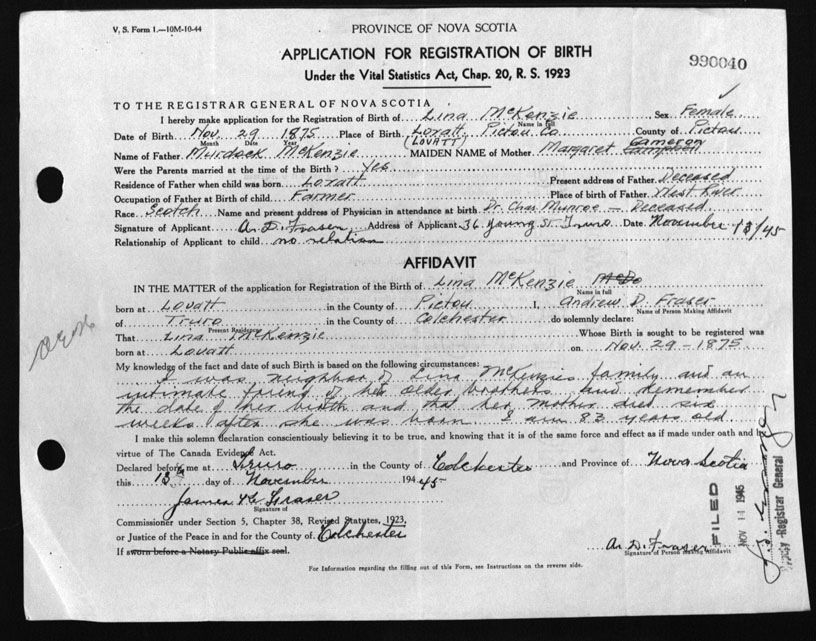 V. S. Form 1.—10M-10-44
PROVINCE OF NOVA SCOTIA
APPLICATION FOR REGISTRATION OF BIRTH
990040
Under the Vital Statistics Act, Chap. 20, R. S. 1923
TO THE REGISTRAR GENERAL OF NOVA SCOTIA
I hereby make application for the Registration of Birth of Lina McKenzie Sex Female
Name in full
Date of Birth Nov. 29 1875 Place of Birth Lovatt, Pictou Co County of Pictou
Month Date Year (LOVATT)
Cameron
Name of Father Murdock McKenzie MAIDEN NAME of Mother Margaret Campbell
Were the Parents married at the time of the Birth? Yes
Residence of Father when child was born Lovatt Present address of Father Deceased
Occupation of Father at Birth of child Farmer Place of birth of Father West River
Race Scotch Name and present address of Physician in attendance at birth Dr. Chas Munroe — Deceased
Signature of Applicant A. D. Fraser Address of Applicant 36 Young St. Truro Date November 13/45
Relationship of Applicant to child no relation
AFFIDAVIT
IN THE MATTER of the application for Registration of the Birth of Lina McKenzie
Name in full
born at Lovatt in the County of Pictou I, Andrew D. Fraser
Name of Person Making Affidavit
of Truro in the County of Colchester do solemnly declare:
Present Residence
That Lina McKenzie Whose Birth is sought to be registered was
born at Lovatt on Nov. 29 - 1875
My knowledge of the fact and date of such Birth is based on the following circumstances:
I was neighbor of Lina McKenzies family and an
intimate friend of her older brothers and remember
the date of her birth and that her mother died six
weeks after she was born I am 83 years old
I make this solemn declaration conscientiously believing it to be true, and knowing that it is of the same force and effect as if made under oath and by
virtue of The Canada Evidence Act.
Declared before me at Truro in the County of Colchester and Province of Nova Scotia
this 13th day of November 194 45
James Fraser
Signature of
Commissioner under Section 5, Chapter 38, Revised Statutes, 1923,
or Justice of the Peace in and for the County of Colchester
If sworn before a Notary Public affix seal.
A. D. Fraser
Signature of Person Making Affidavit
For Information regarding the filling out of this Form, see Instructions on the reverse side.
FILED
NOV 14 1945
Deputy-Registrar General